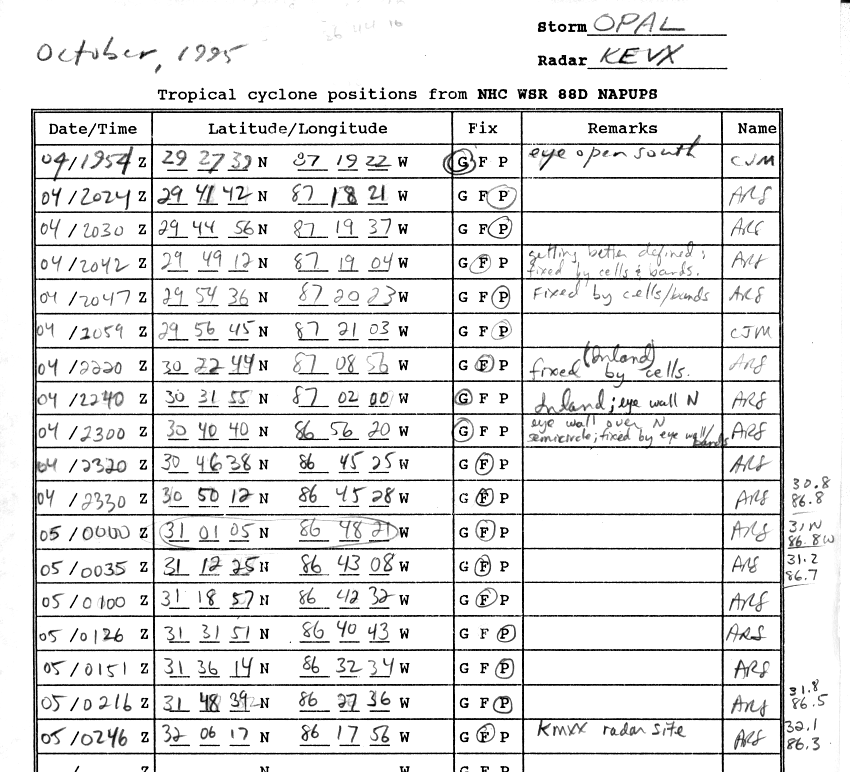 October, 1995
Storm OPAL
Radar KEVX
Tropical cyclone positions from NHC WSR 88D NAPUPS
Date/Time Latitude/Longitude Fix Remarks Name
04/1954 Z 29 27 39 N 87 19 22 W G F P eye open south CJM
04/2024 Z 29 41 42 N 87 18 21 W G F P ARS
04/2030 Z 29 44 56 N 87 19 37 W G F P ARS
04/2042 Z 29 49 12 N 87 19 04 W G F P getting better defined; fixed by cells & bands. ARS
04/2047 Z 29 54 36 N 87 20 23 W G F P Fixed by cells/bands ARS
04/2059 Z 29 56 45 N 87 21 03 W G F P CJM
04/2220 Z 30 22 44 N 87 08 56 W G F P (Inland) fixed by cells. ARS
04/2240 Z 30 31 55 N 87 02 00 W G F P Inland; eye wall N ARS
04/2300 Z 30 40 40 N 86 56 20 W G F P eye wall over N semicircle; fixed by eye wall/bands ARS
04/2320 Z 30 46 38 N 86 45 25 W G F P ARS
04/2330 Z 30 50 12 N 86 45 28 W G F P ARS 30.8 86.8
05/0000 Z 31 01 05 N 86 48 21 W G F P ARS 31N 86.8W
05/0035 Z 31 12 25 N 86 43 08 W G F P ARS 31.2 86.7
05/0100 Z 31 18 57 N 86 42 32 W G F P ARS
05/0126 Z 31 31 51 N 86 40 43 W G F P ARS
05/0151 Z 31 36 14 N 86 32 34 W G F P ARS
05/0216 Z 31 48 39 N 86 27 36 W G F P ARS 31.8 86.5
05/0246 Z 32 06 17 N 86 17 56 W G F P KMXX radar site ARS 32.1 86.3
/ Z N W G F P